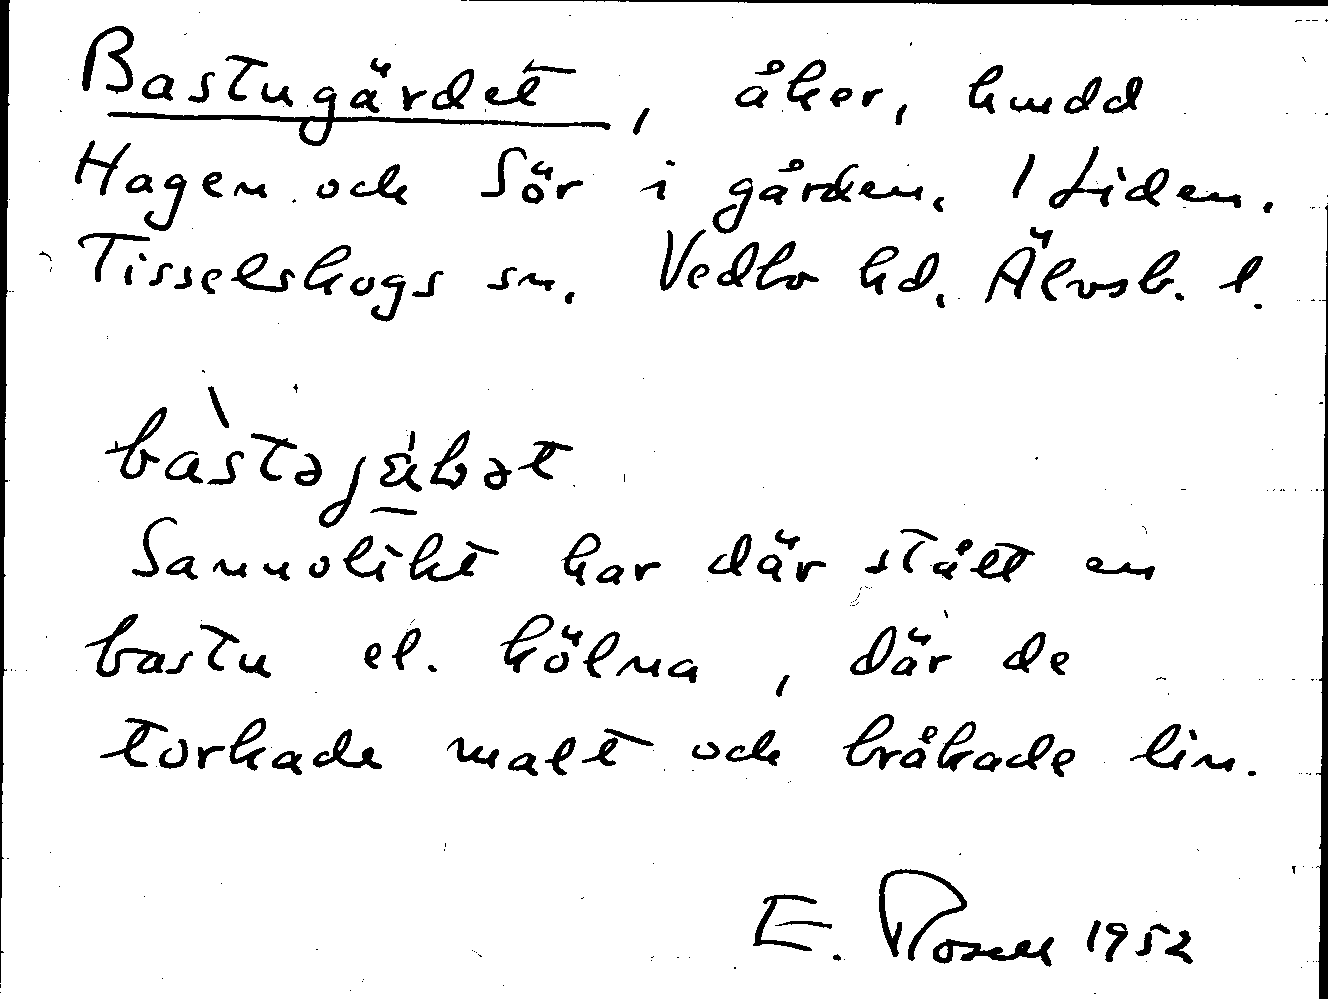 Bastugärdet, åker, hmdd
Hagen och Sör i gården. 1 Liden.
Tisselskogs sn. Vedbo hd. Älvsb. l.
Sannolikt har där stått en
bastu el. kölna, där de
torkade malt och bråkade lin.
E. Rosell 1952